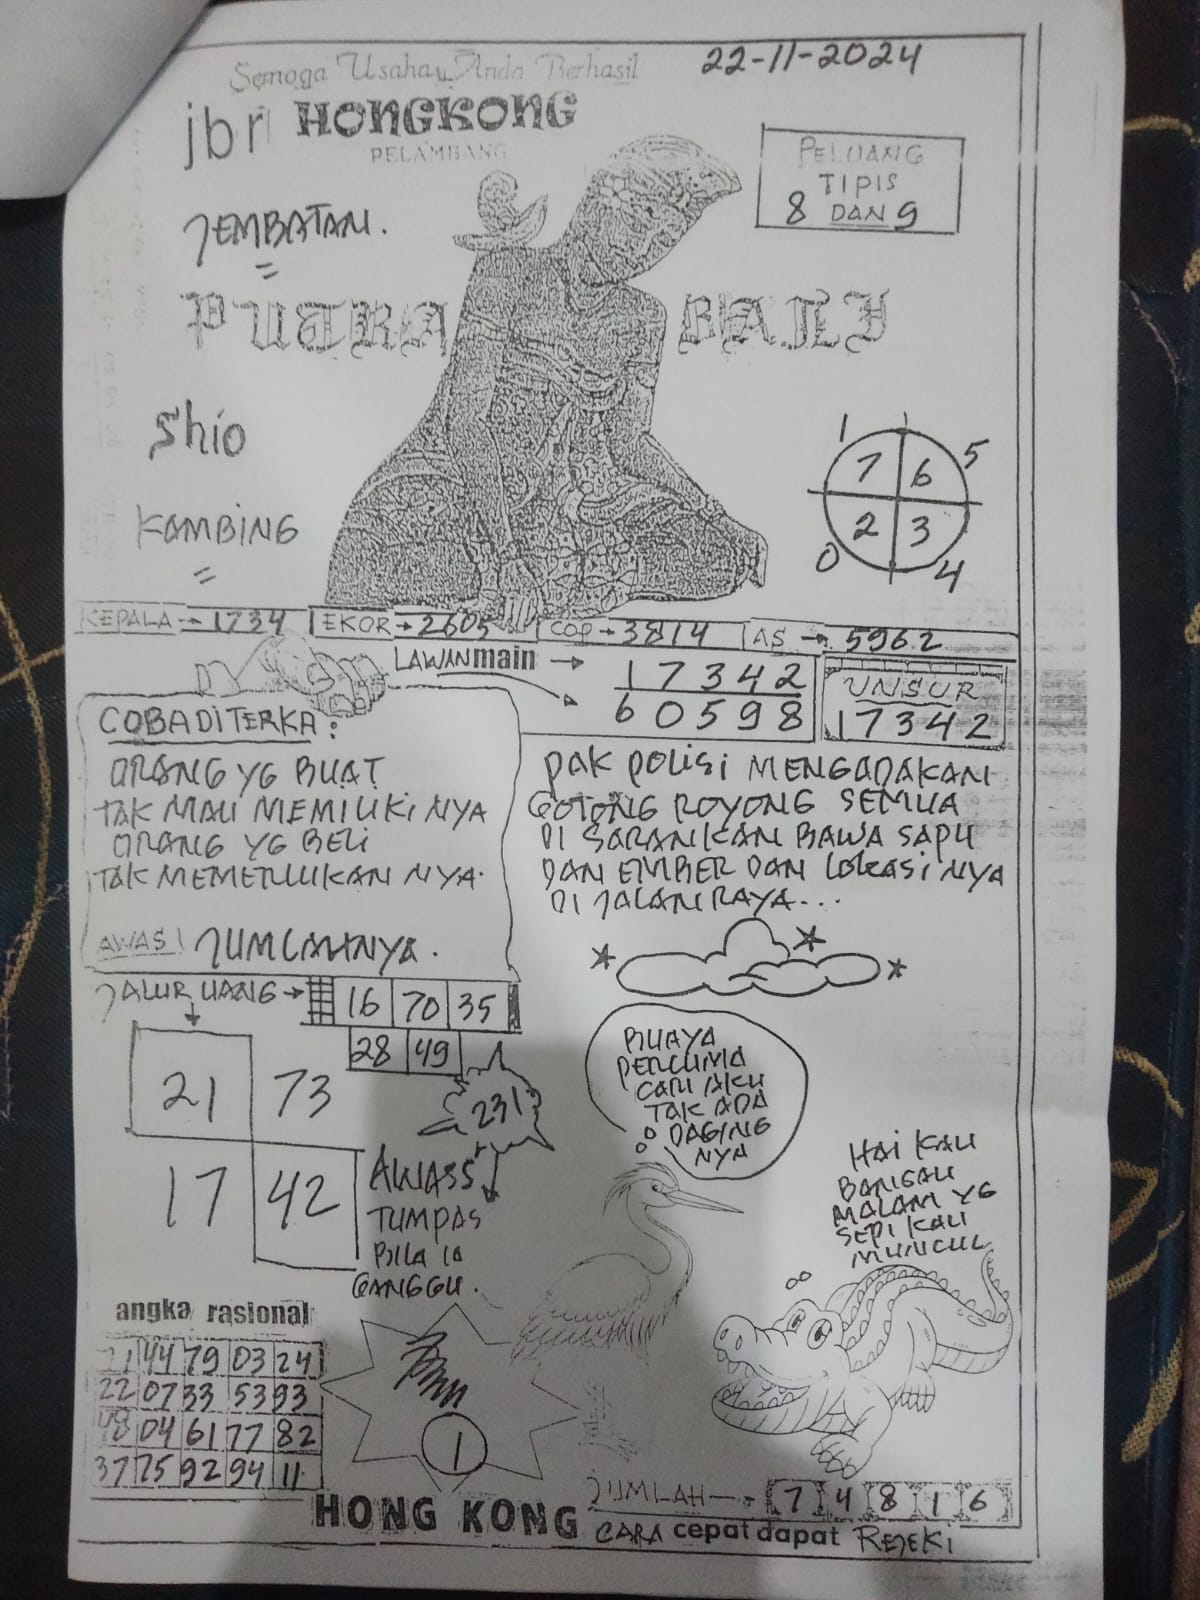 Semoga Usahay Anda Berhasil
22-11-2024
jbr HONGKONG
PELAMBANG
PELUANG
TIPIS
8 DAN 9
JEMBATAN.
PUTRA BALI
Shio
KAMBING
1 5
7 6
2 3
0 4
KEPALA → 1734 EKOR → 2605 COP → 3814 AS → 5962
LAWAN main → 17342
60598
UNSUR
17342
COBA DITERKA:
ORANG YG BUAT
TAK MAU MEMILIKI NYA
ORANG YG BELI
TAK MEMERLUKAN NYA.
AWAS! JUMLAHNYA.
PAK POLISI MENGADAKAN
GOTONG ROYONG SEMUA
DI SARANKAN BAWA SAPU
DAN EMBER DAN LOKASI NYA
DI JALAN RAYA...
JALUR UANG → 16 70 35
28 49
21 73
17 42
231
AWASS
TUMPAS
BILA IA
GANGGU.
BUAYA
PERCUMA
CARI AKU
TAK ADA
DAGING
NYA
HAI KAU
BANGAU
MALAM YG
SEPI KAU
MUNCUL
angka rasional
21 44 79 03 24
22 07 33 53 93
48 04 61 77 82
37 75 92 94 11
1
JUMLAH → 7 4 8 1 6
HONG KONG CARA cepat dapat REJEKI